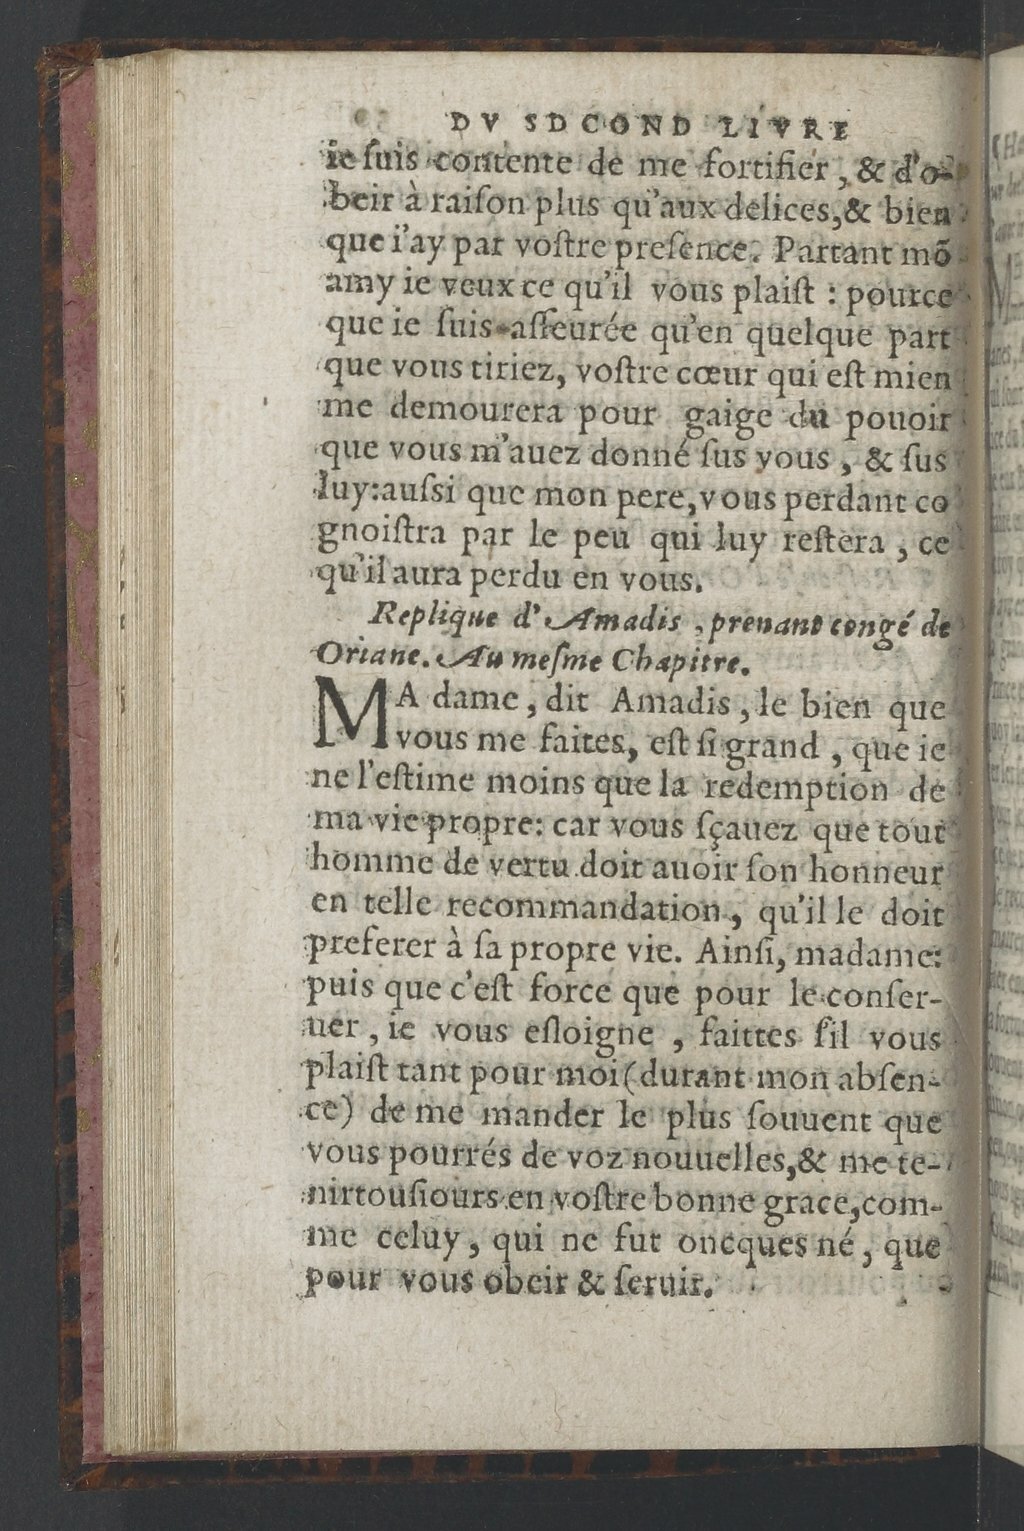 DV SDCOND LIVRE
ie ſuis contente de me fortifier, & d'o-
beir à raiſon plus qu'aux delices, & bien
que i'ay par voſtre preſence. Partant mõ
amy ie veux ce qu'il vous plaiſt : pource
que ie ſuis aſſeurée qu'en quelque part
que vous tiriez, voſtre cœur qui eſt mien
me demourera pour gaige du pouoir
que vous m'auez donné ſus vous, & ſus
luy: auſsi que mon pere, vous perdant co
gnoiſtra par le peu qui luy reſtera, ce
qu'il aura perdu en vous.
Replique d'Amadis, prenant congé de
Oriane. Au meſme Chapitre.
MA dame, dit Amadis, le bien que
vous me faites, eſt ſi grand, que ie
ne l'eſtime moins que la redemption de
ma vie propre: car vous ſçauez que tout
homme de vertu doit auoir ſon honneur
en telle recommandation, qu'il le doit
preferer à ſa propre vie. Ainſi, madame:
puis que c'eſt force que pour le conſer-
uer, ie vous eſloigne, faittes ſil vous
plaiſt tant pour moi (durant mon abſen-
ce) de me mander le plus ſouuent que
vous pourrés de voz nouuelles, & me te-
nirtouſiours en voſtre bonne grace, com-
me celuy, qui ne fut oncques né, que
pour vous obeir & ſeruir.